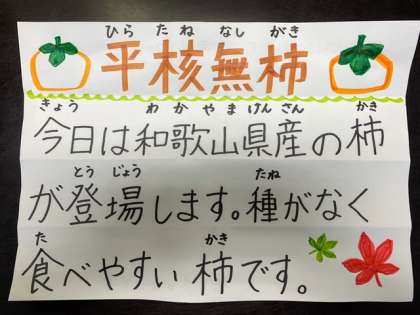 ひら たね なし がき
平核無柿
きょう わかやまけんさん かき
今日は和歌山県産の柿
とうじょう たね
が登場します。種がなく
た かき
食べやすい柿です。